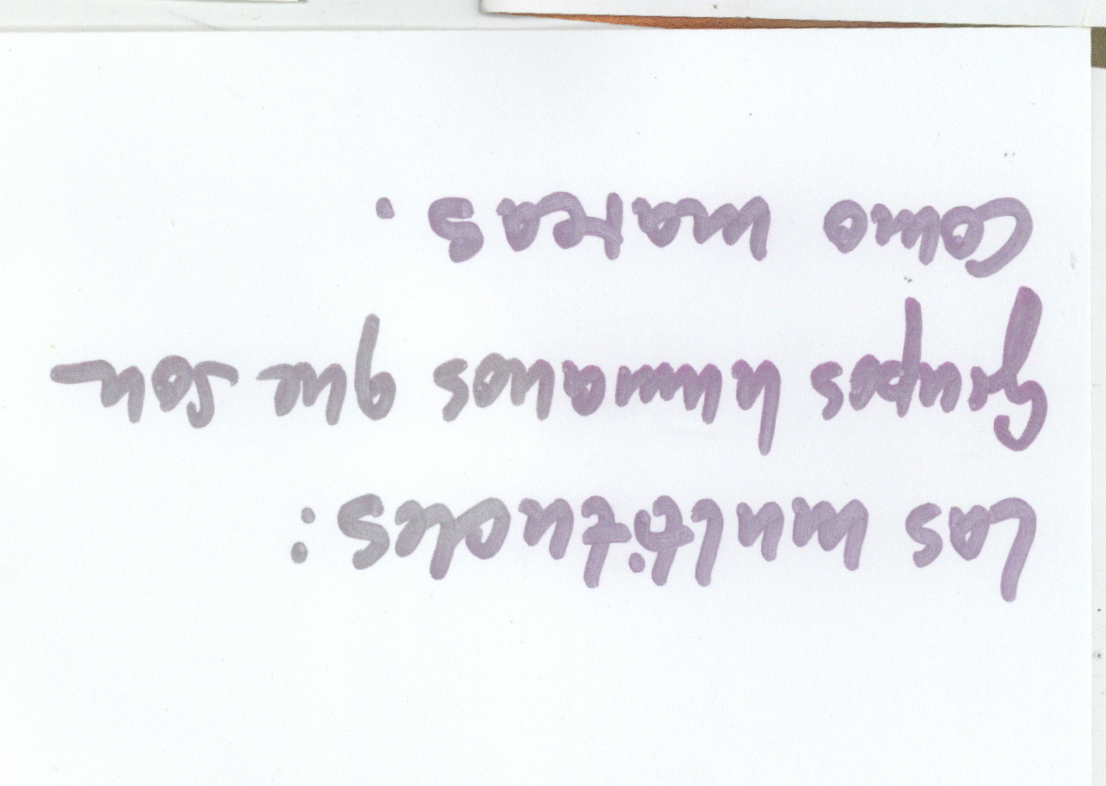 Las multitudes:
Grupos humanos que son
como mareas.